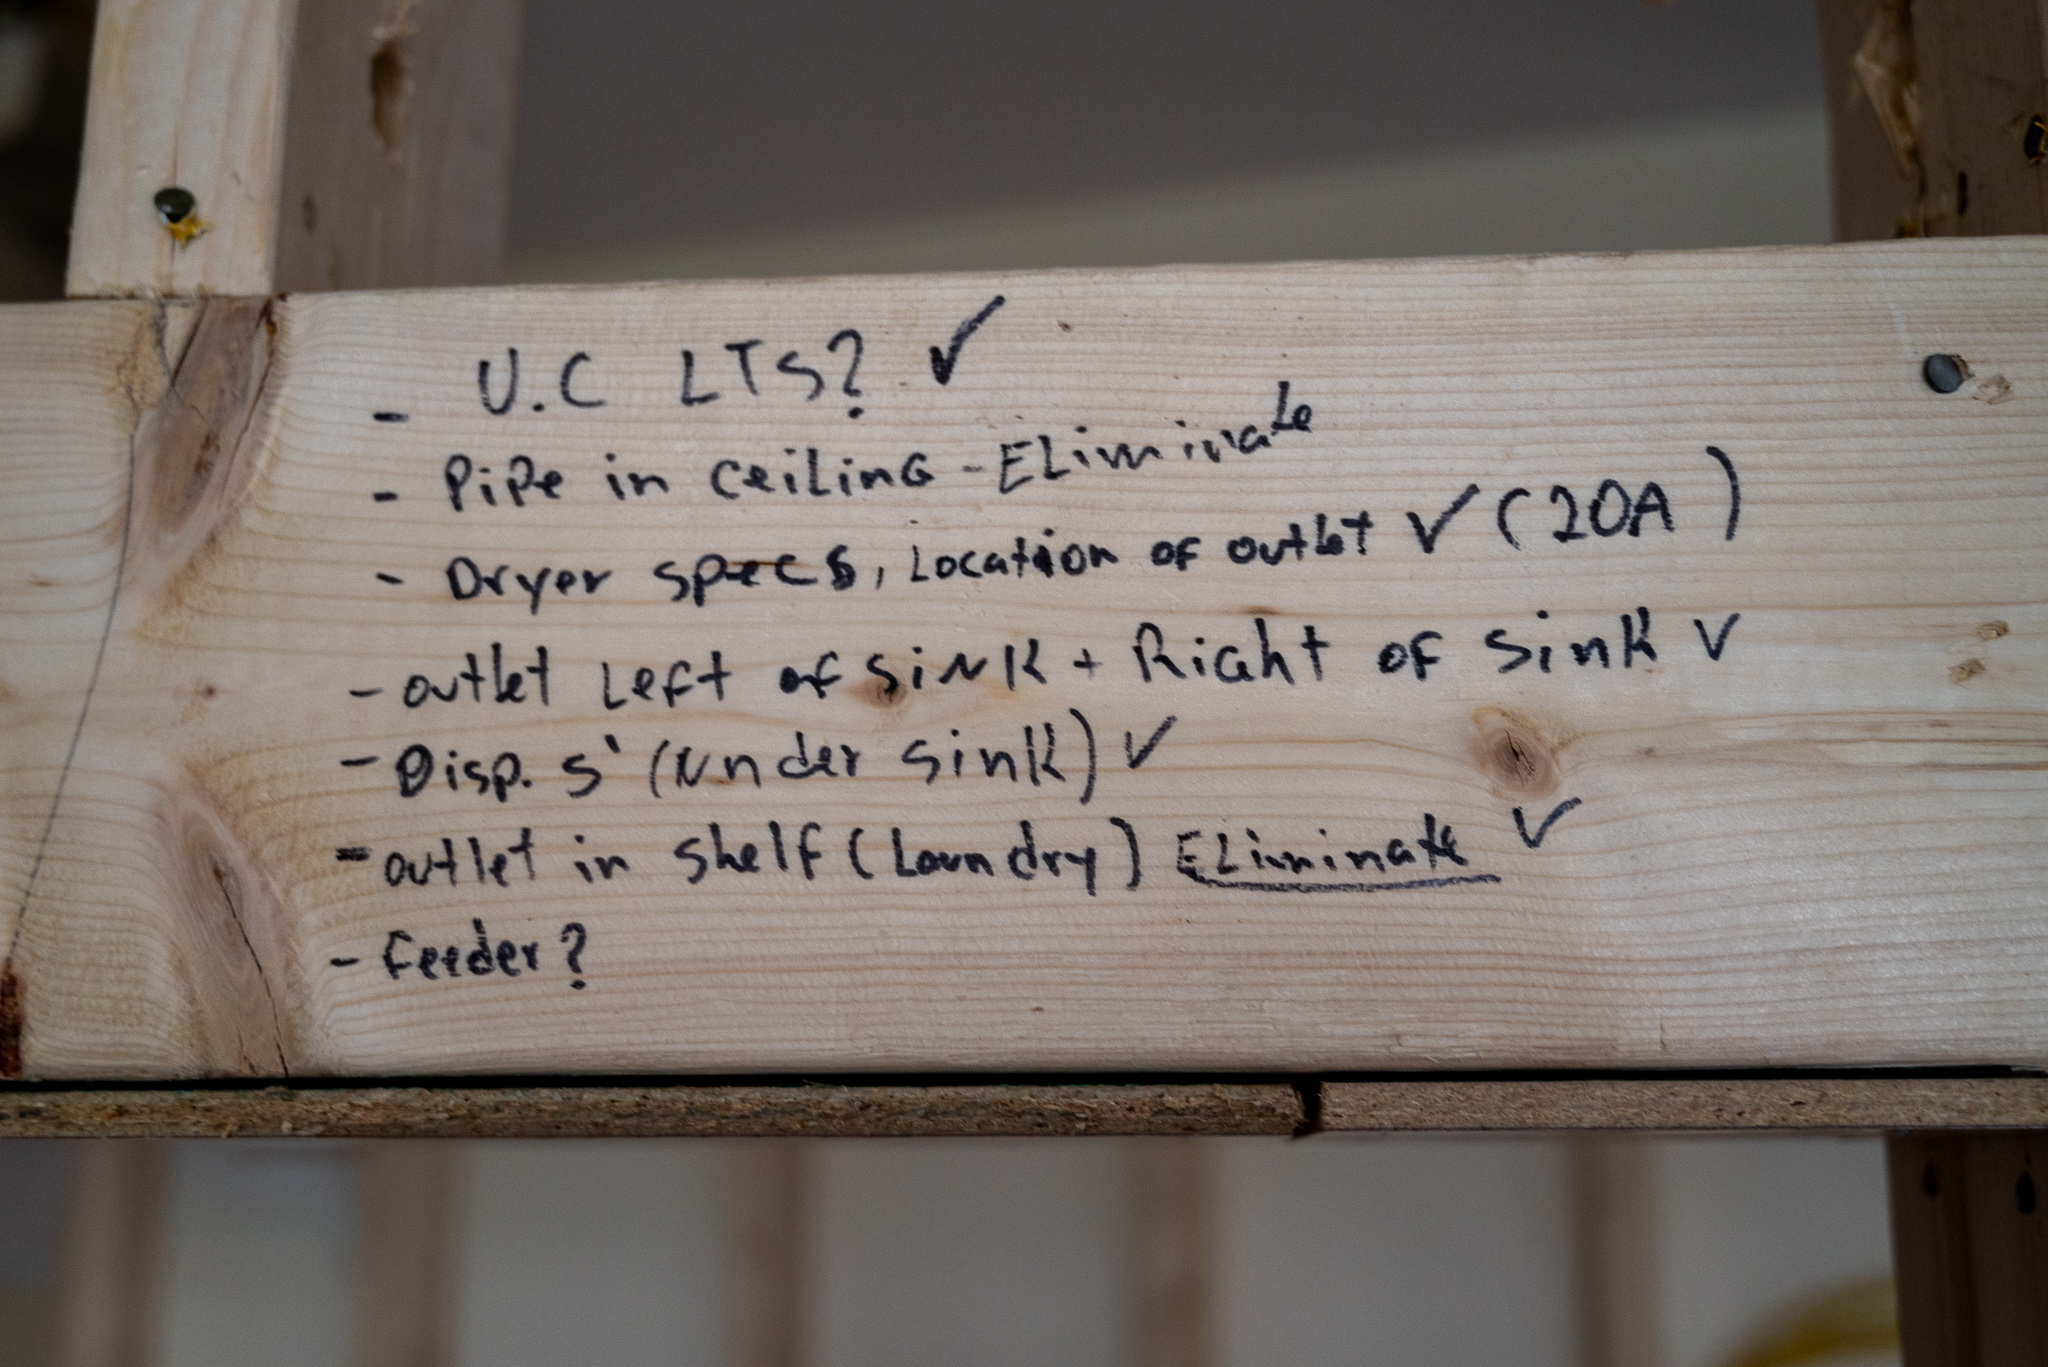 - U.C LTS? ✓
- Pipe in ceiling - Eliminate
- Dryer specs, Location of outlet ✓ (20A)
- outlet Left of sink + Right of sink ✓
- Disp. s' (under sink) ✓
- outlet in shelf (Laundry) Eliminate ✓
- feeder?